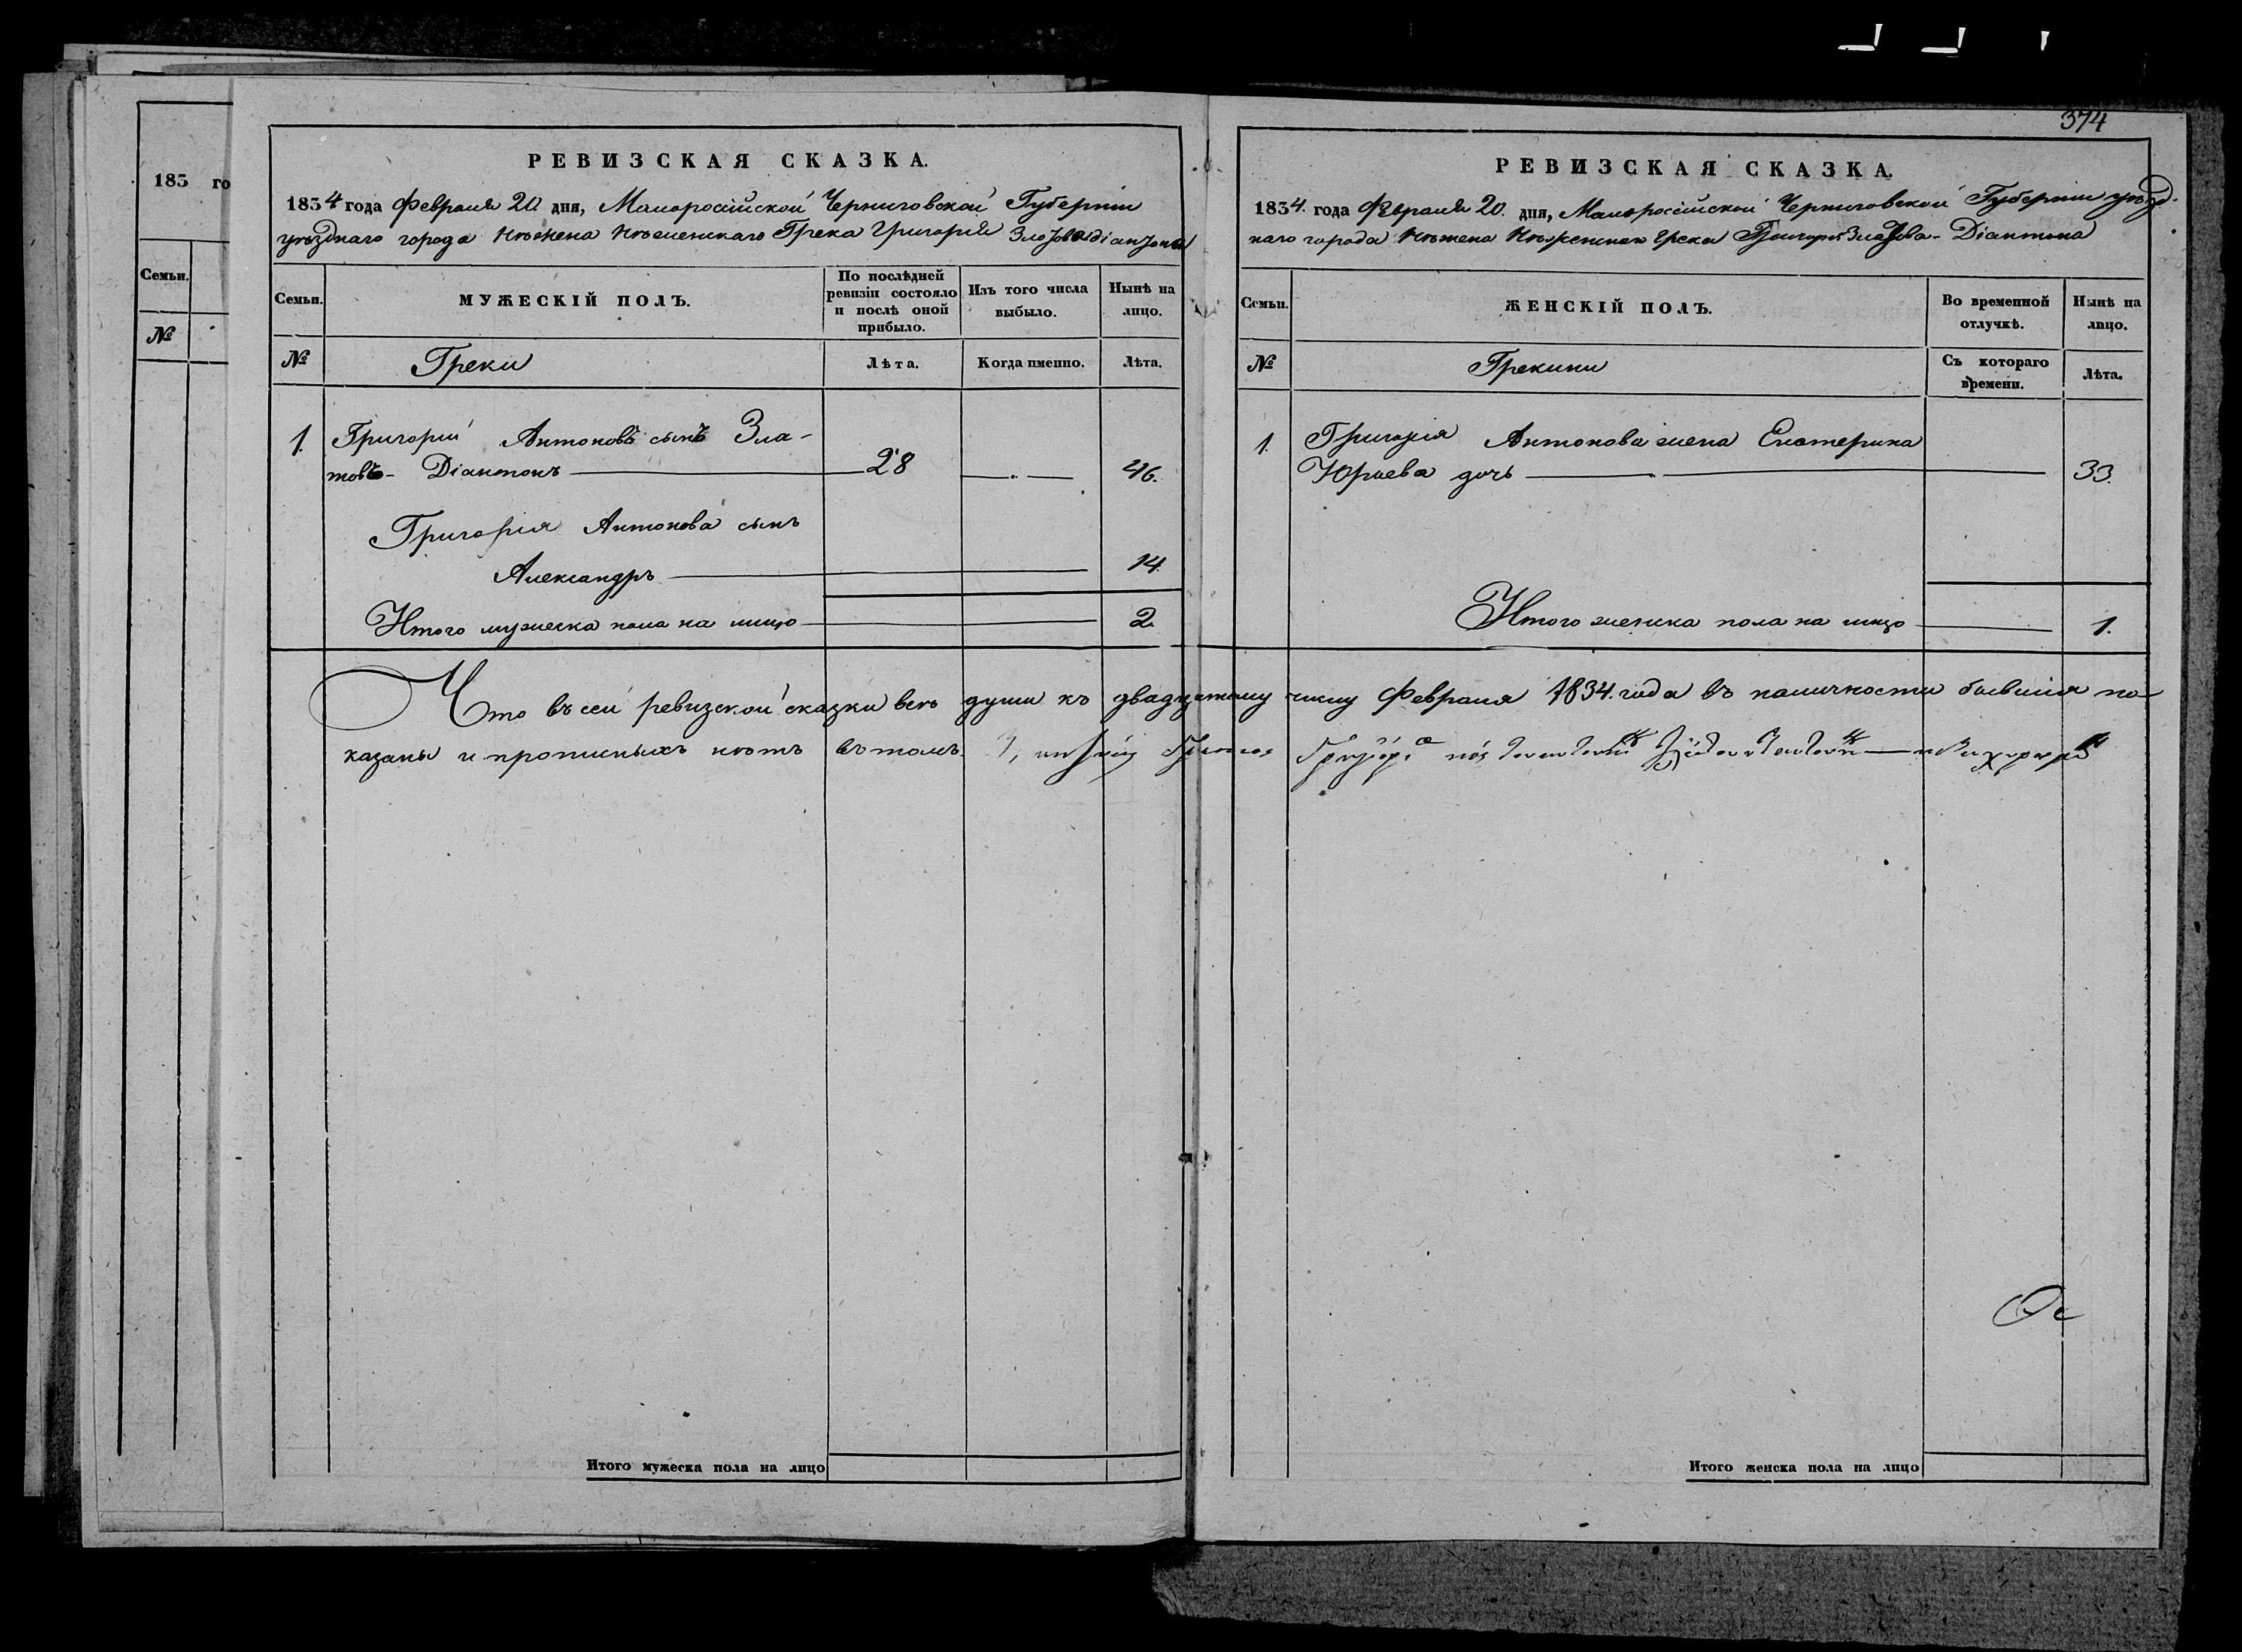 374
183 го
Семьи.
№
РЕВИЗСКАЯ СКАЗКА.
1834 года Февраля 20 дня, Малоросiйской Черниговской Губернiи
уѣзднаго города Нѣжена Нѣженскаго Грека Григорiя Златова Дiантона
Семьи.
МУЖЕСКIЙ ПОЛЪ.
По послѣдней
ревизiи состояло
и послѣ оной
прибыло.
Изъ того числа
выбыло.
Нынѣ на
лицо.
№
Греки
Лѣта.
Когда именно.
Лѣта.
1. Григорiй Антоновъ сынъ Зла-
товъ- Дiантонъ 28 46.
Григорiя Антонова сынъ
Александръ 14.
Итого мужеска пола на лицо 2.
РЕВИЗСКАЯ СКАЗКА.
1834. года Февраля 20. дня, Малоросiйской Черниговской Губернiи уѣзд-
наго города Нѣжена Нѣженскаго Грека Григорiя Златова- Дiантона
Семьи.
ЖЕНСКIЙ ПОЛЪ.
Во временной
отлучкѣ.
Нынѣ на
лицо.
№
Грекини
Съ котораго
времени.
Лѣта.
1. Григорiя Антонова жена Екатерина
Юрьева дочь 33.
Итого женска пола на лицо 1.
Что въ сей ревизской сказки всѣ души къ двадцатому числу Февраля 1834. года въ наличности бывшiя по-
казаны и прописныхъ нѣтъ въ томъ
Итого мужеска пола на лицо
Итого женска пола на лицо